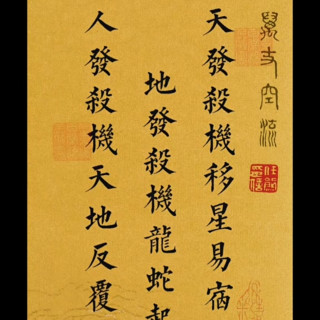 天發殺機移星易宿
地發殺機龍蛇起
人發殺機天地反覆